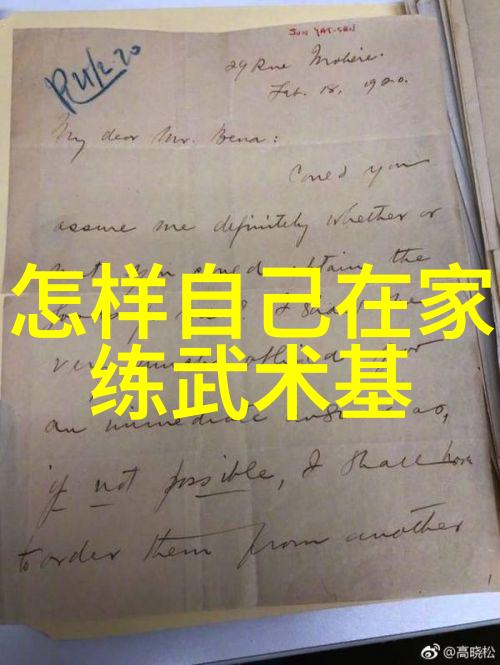 SUN YAT-SEN
R 21/2.20
29 Rue Molière.
Feb. 18, 1920.
My dear Mr. Bena:
Could you
assure me definitely whether or
obtain the
怎样自己在家
练武术基
an immediate
if not possible, I shall have
to order them from another
@高晓松